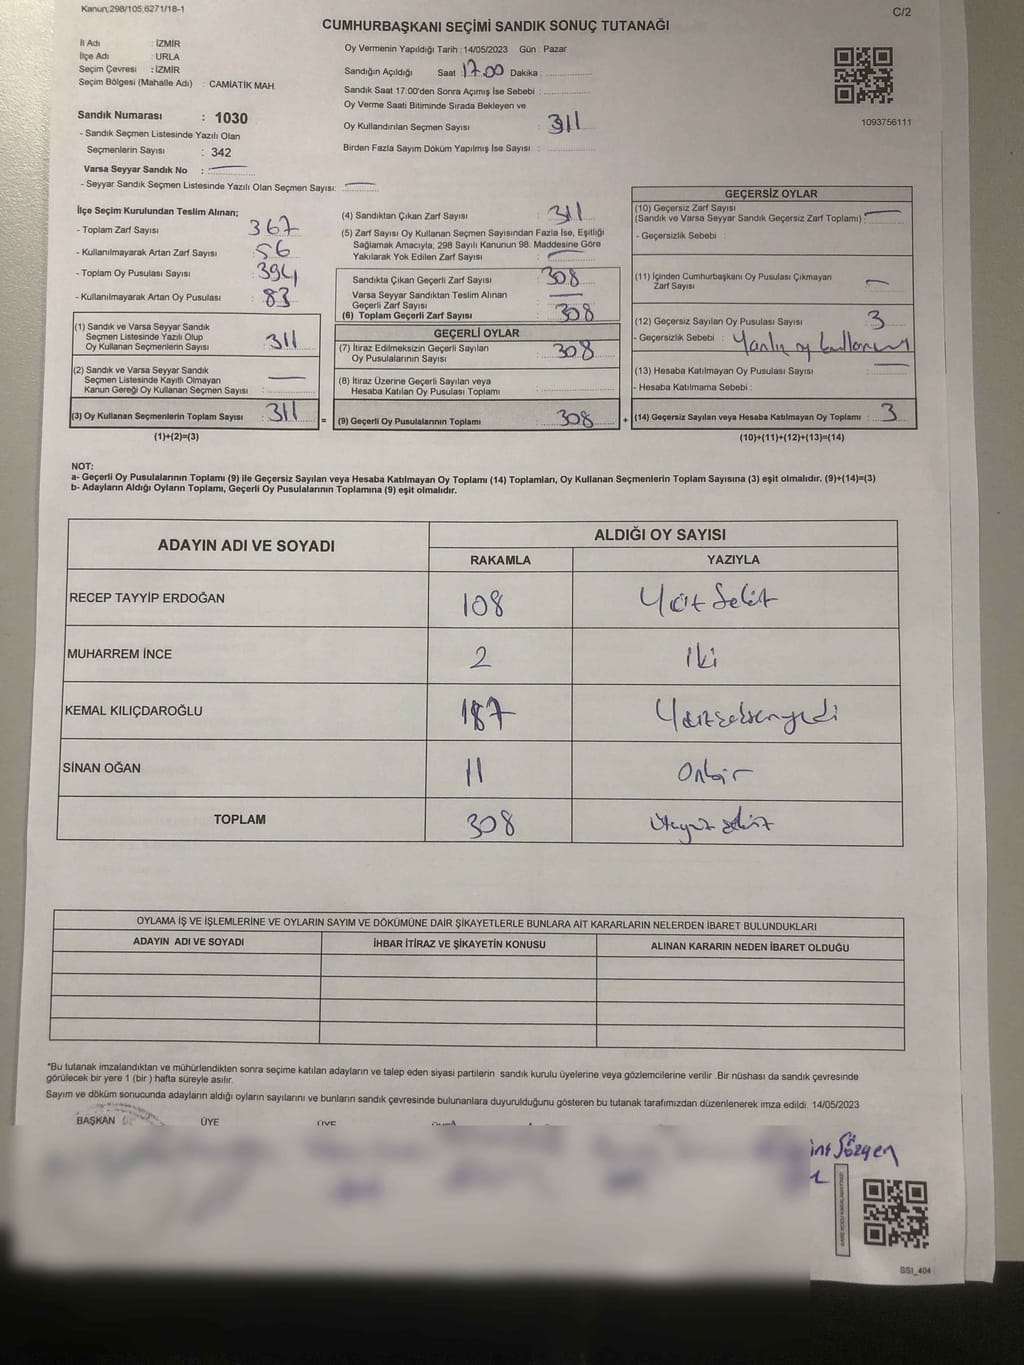 Kanun;298/105,6271/18-1
C/2
CUMHURBAŞKANI SEÇİMİ SANDIK SONUÇ TUTANAĞI
İl Adı : İZMİR
İlçe Adı : URLA
Seçim Çevresi : İZMİR
Seçim Bölgesi (Mahalle Adı) : CAMİATİK MAH.
Sandık Numarası : 1030
- Sandık Seçmen Listesinde Yazılı Olan
Seçmenlerin Sayısı : 342
Varsa Seyyar Sandık No :
- Seyyar Sandık Seçmen Listesinde Yazılı Olan Seçmen Sayısı:
Oy Vermenin Yapıldığı Tarih : 14/05/2023 Gün : Pazar
Sandığın Açıldığı Saat : 17.00 Dakika :
Sandık Saat 17:00'den Sonra Açımış İse Sebebi :
Oy Verme Saati Bitiminde Sırada Bekleyen ve
Oy Kullandırılan Seçmen Sayısı : 311
Birden Fazla Sayım Döküm Yapılmış İse Sayısı :
1093756111
İlçe Seçim Kurulundan Teslim Alınan;
- Toplam Zarf Sayısı : 367
- Kullanılmayarak Artan Zarf Sayısı : 56
- Toplam Oy Pusulası Sayısı : 394
- Kullanılmayarak Artan Oy Pusulası : 83
(1) Sandık ve Varsa Seyyar Sandık
Seçmen Listesinde Yazılı Olup
Oy Kullanan Seçmenlerin Sayısı : 311
(2) Sandık ve Varsa Seyyar Sandık
Seçmen Listesinde Kayıtlı Olmayan
Kanun Gereği Oy Kullanan Seçmen Sayısı :
(3) Oy Kullanan Seçmenlerin Toplam Sayısı : 311
(1)+(2)=(3)
(4) Sandıktan Çıkan Zarf Sayısı : 311
(5) Zarf Sayısı Oy Kullanan Seçmen Sayısından Fazla İse, Eşitliği
Sağlamak Amacıyla, 298 Sayılı Kanunun 98. Maddesine Göre
Yakılarak Yok Edilen Zarf Sayısı :
Sandıkta Çıkan Geçerli Zarf Sayısı : 308
Varsa Seyyar Sandıktan Teslim Alınan
Geçerli Zarf Sayısı :
(6) Toplam Geçerli Zarf Sayısı : 308
GEÇERLİ OYLAR
(7) İtiraz Edilmeksizin Geçerli Sayılan
Oy Pusulalarının Sayısı : 308
(8) İtiraz Üzerine Geçerli Sayılan veya
Hesaba Katılan Oy Pusulası Toplamı :
= (9) Geçerli Oy Pusulalarının Toplamı : 308 +
GEÇERSİZ OYLAR
(10) Geçersiz Zarf Sayısı
(Sandık ve Varsa Seyyar Sandık Geçersiz Zarf Toplamı) :
- Geçersizlik Sebebi :
(11) İçinden Cumhurbaşkanı Oy Pusulası Çıkmayan
Zarf Sayısı :
(12) Geçersiz Sayılan Oy Pusulası Sayısı : 3
- Geçersizlik Sebebi : Yanlış oy kullanımı
(13) Hesaba Katılmayan Oy Pusulası Sayısı :
- Hesaba Katılmama Sebebi :
(14) Geçersiz Sayılan veya Hesaba Katılmayan Oy Toplamı : 3
(10)+(11)+(12)+(13)=(14)
NOT:
a- Geçerli Oy Pusulalarının Toplamı (9) ile Geçersiz Sayılan veya Hesaba Katılmayan Oy Toplamı (14) Toplamları, Oy Kullanan Seçmenlerin Toplam Sayısına (3) eşit olmalıdır. (9)+(14)=(3)
b- Adayların Aldığı Oyların Toplamı, Geçerli Oy Pusulalarının Toplamına (9) eşit olmalıdır.
ADAYIN ADI VE SOYADI
ALDIĞI OY SAYISI
RAKAMLA YAZIYLA
RECEP TAYYİP ERDOĞAN 108 Yüz Sekiz
MUHARREM İNCE 2 İki
KEMAL KILIÇDAROĞLU 187 Yüzseksenyedi
SİNAN OĞAN 11 Onbir
TOPLAM 308 üçyüz sekiz
OYLAMA İŞ VE İŞLEMLERİNE VE OYLARIN SAYIM VE DÖKÜMÜNE DAİR ŞİKAYETLERLE BUNLARA AİT KARARLARIN NELERDEN İBARET BULUNDUKLARI
ADAYIN ADI VE SOYADI İHBAR İTİRAZ VE ŞİKAYETİN KONUSU ALINAN KARARIN NEDEN İBARET OLDUĞU
*Bu tutanak imzalandıktan ve mühürlendikten sonra seçime katılan adayların ve talep eden siyasi partilerin sandık kurulu üyelerine veya gözlemcilerine verilir .Bir nüshası da sandık çevresinde
görülecek bir yere 1 (bir ) hafta süreyle asılır.
Sayım ve döküm sonucunda adayların aldığı oyların sayılarını ve bunların sandık çevresinde bulunanlara duyurulduğunu gösteren bu tutanak tarafımızdan düzenlenerek imza edildi. 14/05/2023
BAŞKAN ÜYE ÜYE
Sözgen
SSI_404